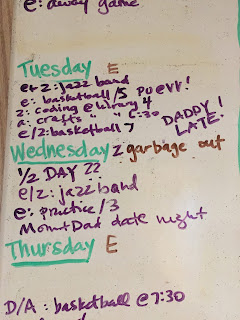 e: away game
Tuesday E
e+z: jazz band
e: basketball/5 puerr!
z: coding @ library 4
a: crafts " " 6:30
e/z: basketball 7
DADDY!
LATE.
Wednesday z garbage out
1/2 DAY ??
e/z: jazz band
e: practice / 3
Mom+Dad date night
Thursday E
D/A: basketball @ 7:30